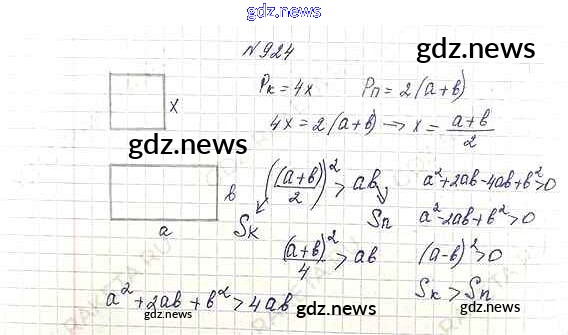 gdz.news
N 924
gdz.news
x
Pк = 4x Pп = 2(a+b)
4x = 2(a+b) → x = (a+b)/2
gdz.news
b
a
((a+b)/2)² > ab
Sк Sп
(a+b)²/4 > ab
a² + 2ab + b² > 4ab
a²+2ab-4ab+b²>0
a²-2ab+b²>0
(a-b)²>0
Sк > Sп
gdz.news
gdz.news
gdz.news